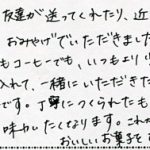 友達が送ってくれたり、近
おみやげでいただきました
もコーヒーでも、いつもより
入れて、一緒にいただきた
です。丁寧につくられたも
味わいたくなります。これか
おいしいお菓子を